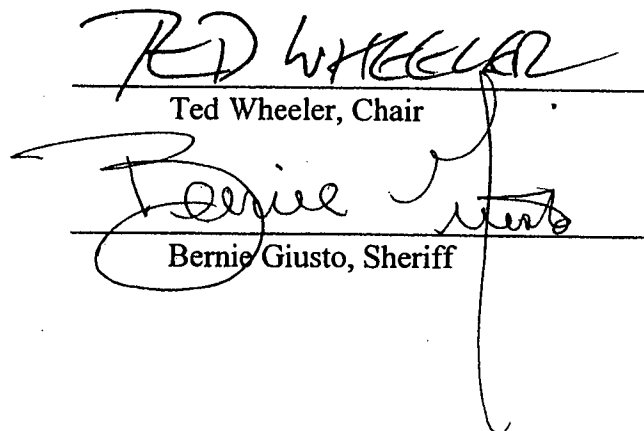 TED WHEELER
Ted Wheeler, Chair
Bernie Giusto
Bernie Giusto, Sheriff